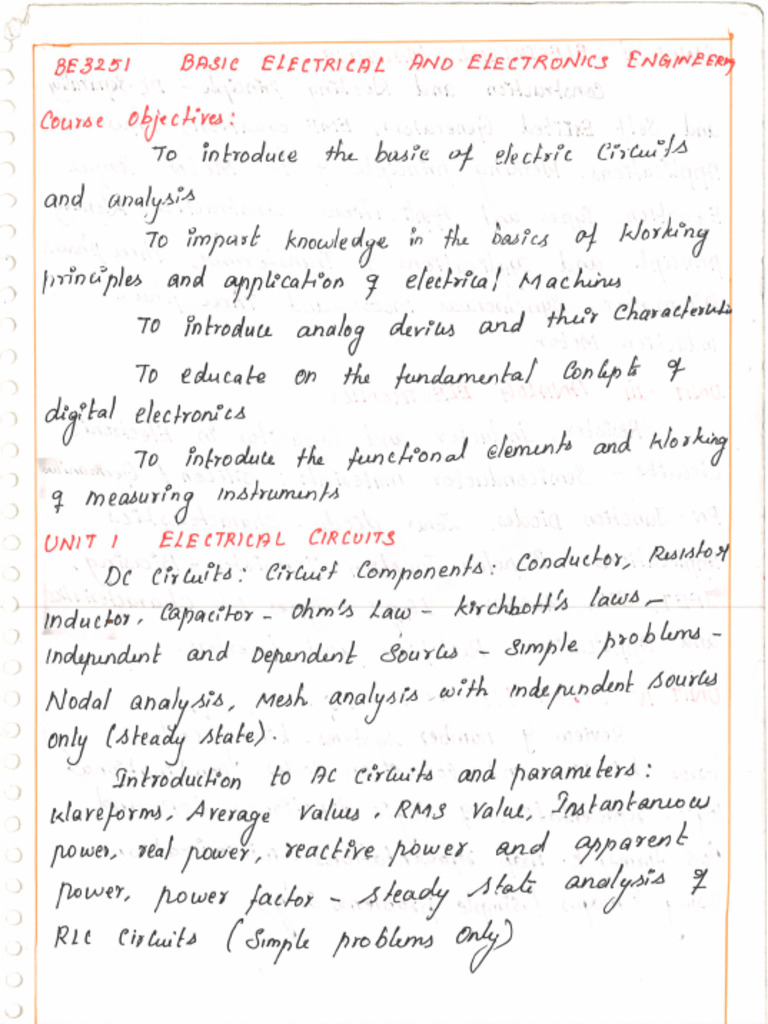 BE3251 BASIC ELECTRICAL AND ELECTRONICS ENGINEERING
Course Objectives:
To introduce the basic of electric Circuits
and analysis
To impart knowledge in the basics of Working
principles and application of electrical Machines
To introduce analog devices and their Characteristics
To educate on the fundamental Concepts of
digital electronics
To introduce the functional elements and Working
of measuring instruments
UNIT I ELECTRICAL CIRCUITS
DC Circuits: Circuit Components: Conductor, Resistor
Inductor, Capacitor - Ohm's Law - Kirchhoff's laws -
Independent and Dependent Sources - Simple problems -
Nodal analysis, Mesh analysis with independent sources
only (steady state).
Introduction to AC Circuits and parameters:
Waveforms, Average Values, RMS Value, Instantaneous
power, real power, reactive power and apparent
power, power factor - steady state analysis of
RLC Circuits (Simple problems Only)